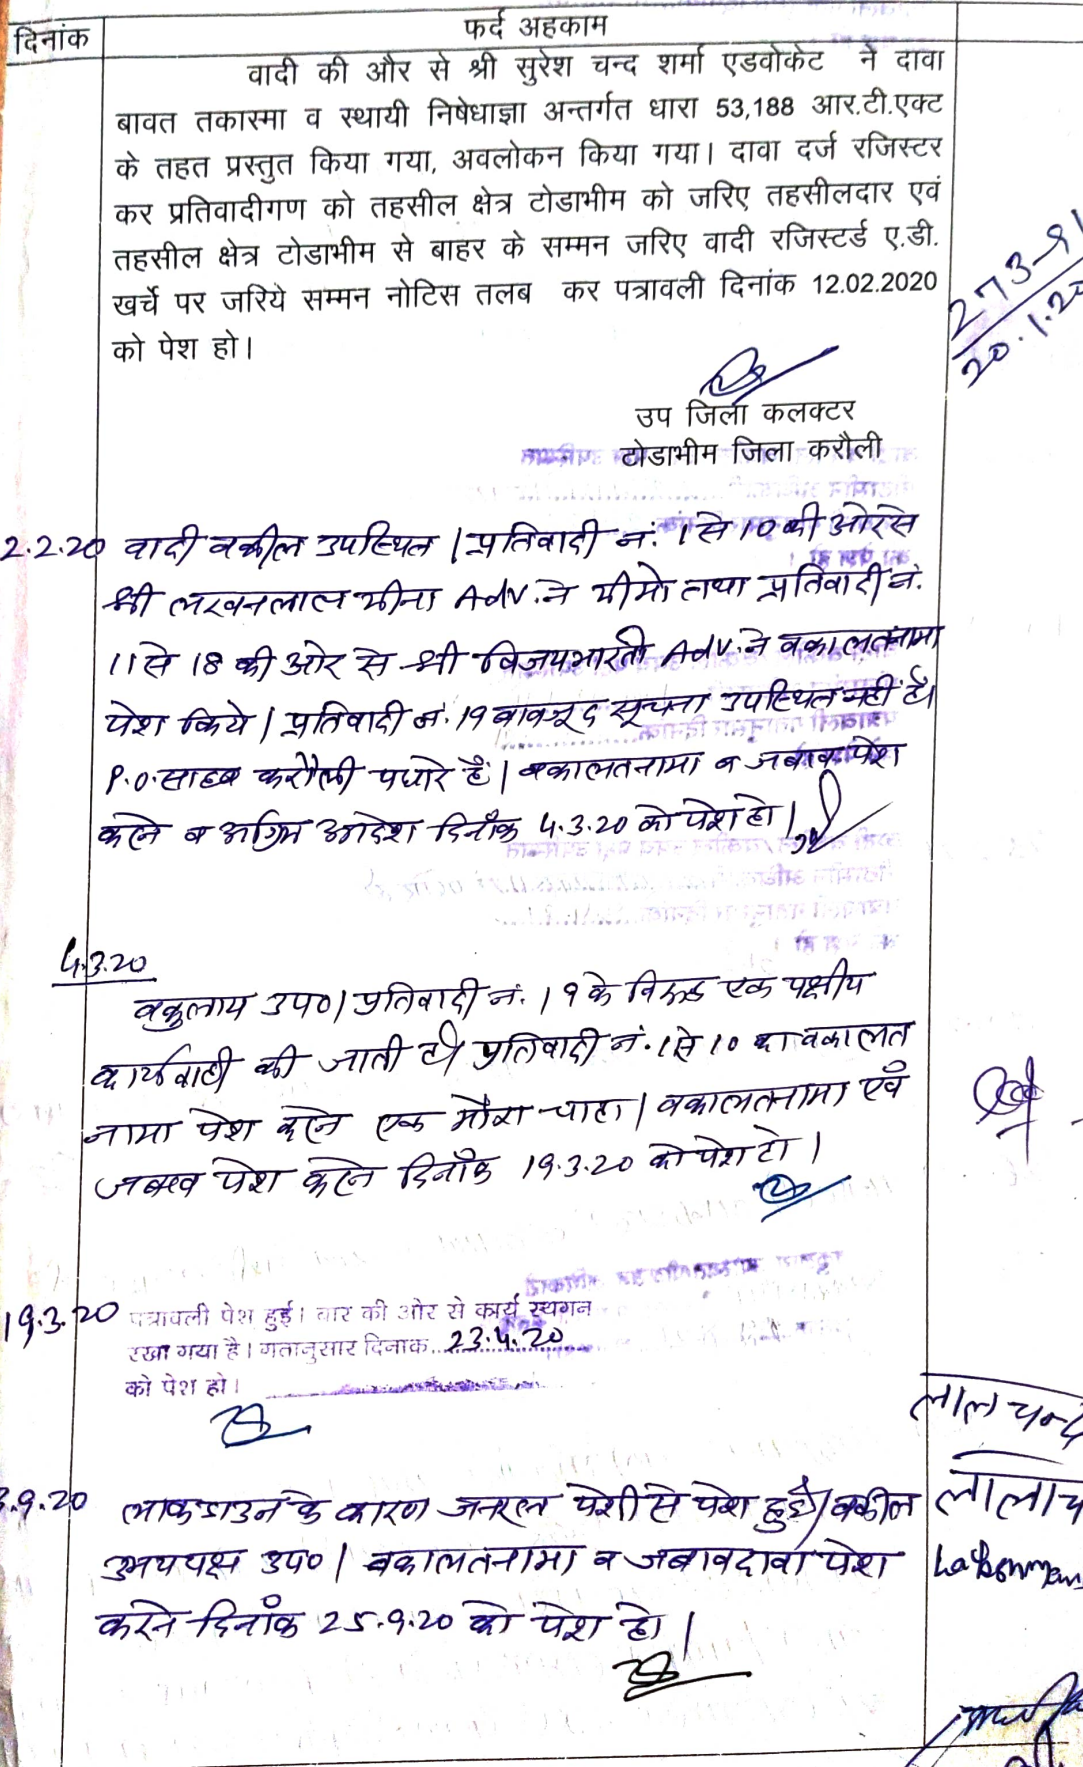 दिनांक
फर्द अहकाम
वादी की और से श्री सुरेश चन्द शर्मा एडवोकेट ने दावा
बावत तकास्मा व स्थायी निषेधाज्ञा अन्तर्गत धारा 53,188 आर.टी.एक्ट
के तहत प्रस्तुत किया गया, अवलोकन किया गया। दावा दर्ज रजिस्टर
कर प्रतिवादीगण को तहसील क्षेत्र टोडाभीम को जरिए तहसीलदार एवं
तहसील क्षेत्र टोडाभीम से बाहर के सम्मन जरिए वादी रजिस्टर्ड ए.डी.
खर्चे पर जरिये सम्मन नोटिस तलब कर पत्रावली दिनांक 12.02.2020
को पेश हो।
273-91
20.1.20
उप जिला कलक्टर
टोडाभीम जिला करौली
2.2.20 वादी वकील उपस्थित। प्रतिवादी नं. 1 से 10 की ओर से
श्री लखनलाल मीना Adv. ने मीमो तथा प्रतिवादी नं.
11 से 18 की ओर से श्री विजय भारती Adv. ने वकालतनामा
पेश किये। प्रतिवादी नं. 19 बावजूद सूचना उपस्थित नहीं है।
P.O. साहब करौली पधारे हैं। वकालतनामा व जबाब पेश
करने व अग्रिम आदेश दिनाँक 4.3.20 को पेश हो।
4.3.20
वकुलाय उप०। प्रतिवादी नं. 19 के विरूद्ध एक पक्षीय
कार्यवाही की जाती है। प्रतिवादी नं. 1 से 10 का वकालत
नामा पेश करने एक मौका चाहा। वकालतनामा एवँ
जबाव पेश करने दिनाँक 19.3.20 को पेश हो।
19.3.20 पत्रावली पेश हुई। बार की ओर से कार्य स्थगन
रखा गया है। गतानुसार दिनांक 23.4.20
को पेश हो।
लाल चन्द
.9.20 लाकडाउन के कारण जनरल पेशी से पेश हुई। वकील
उभयपक्ष उप०। वकालतनामा व जबावदावा पेश
करने दिनाँक 25.9.20 को पेश हो।